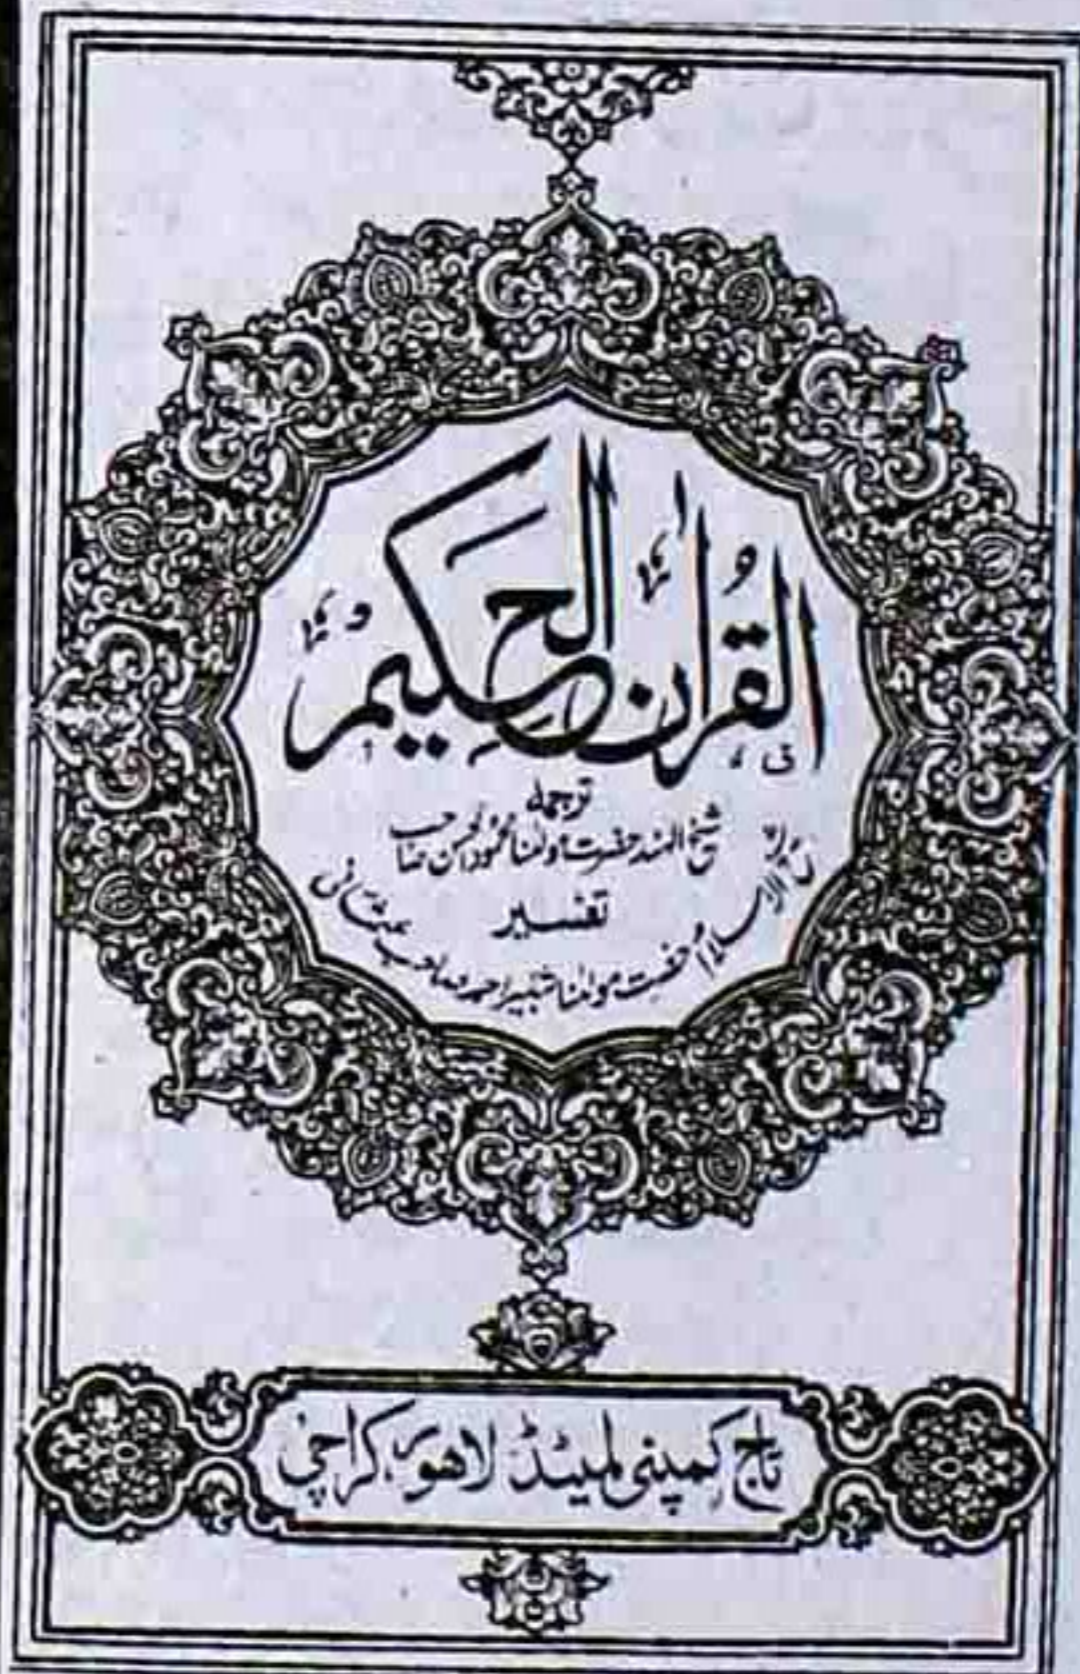 القرآن الحكيم
ترجمہ
شیخ الہند حضرت مولٰنا محمود الحسن صاحب
تفسیر
شیخ الاسلام حضرت مولٰنا شبیر احمد صاحب عثمانی
تاج کمپنی لمیٹڈ لاہور، کراچی